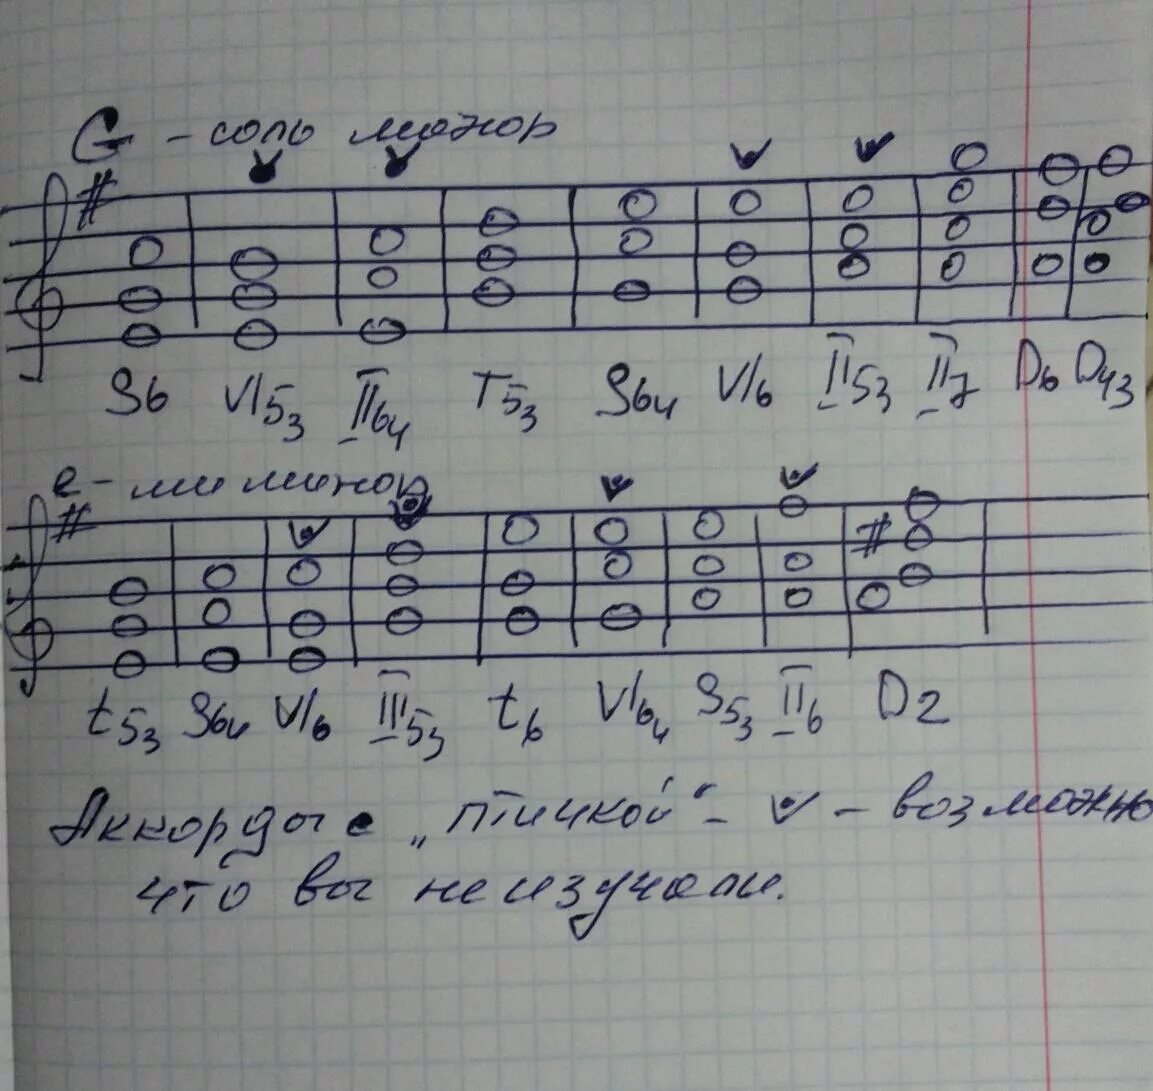 G - соль мажор
S6 VI53 II64 T53 S64 VI6 II53 II7 D6 D43
e - ми минор
t53 S64 VI6 III53 t6 VI64 S53 II6 D2
Аккорды с „птичкой“ - v - возможно
что вы не изучали.